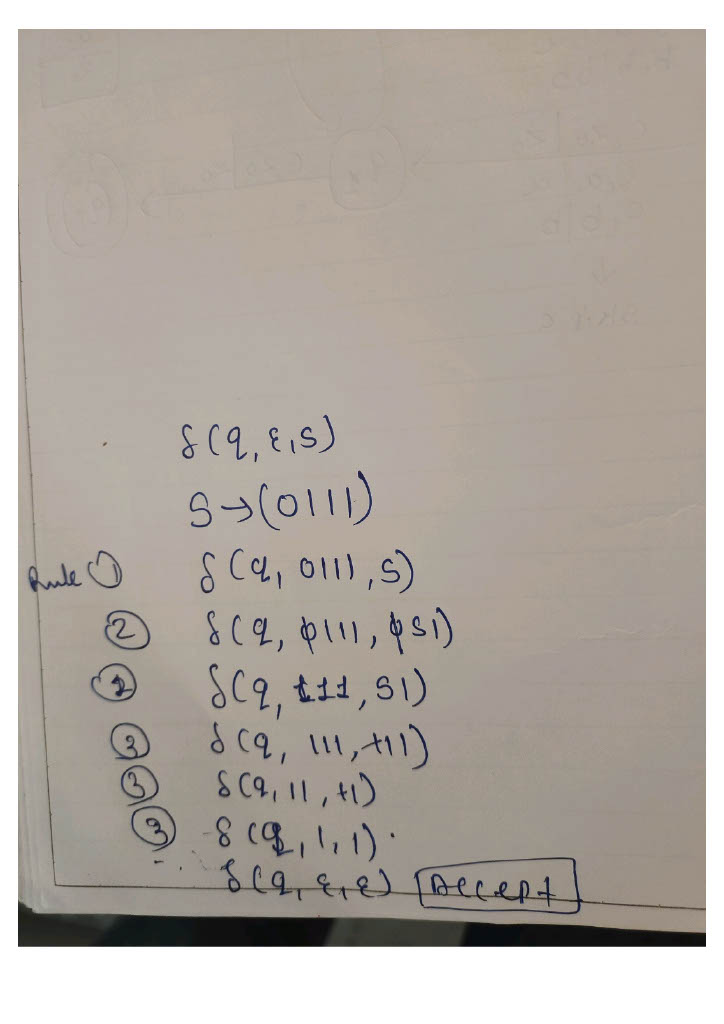 δ(q, ε, S)
S→(0111)
Rule ① δ(q, 0111, S)
② δ(q, 0111, 0S1)
② δ(q, 111, S1)
③ δ(q, 111, 111)
③ δ(q, 11, 11)
③ δ(q, 1, 1).
δ(q, ε, ε) Accept